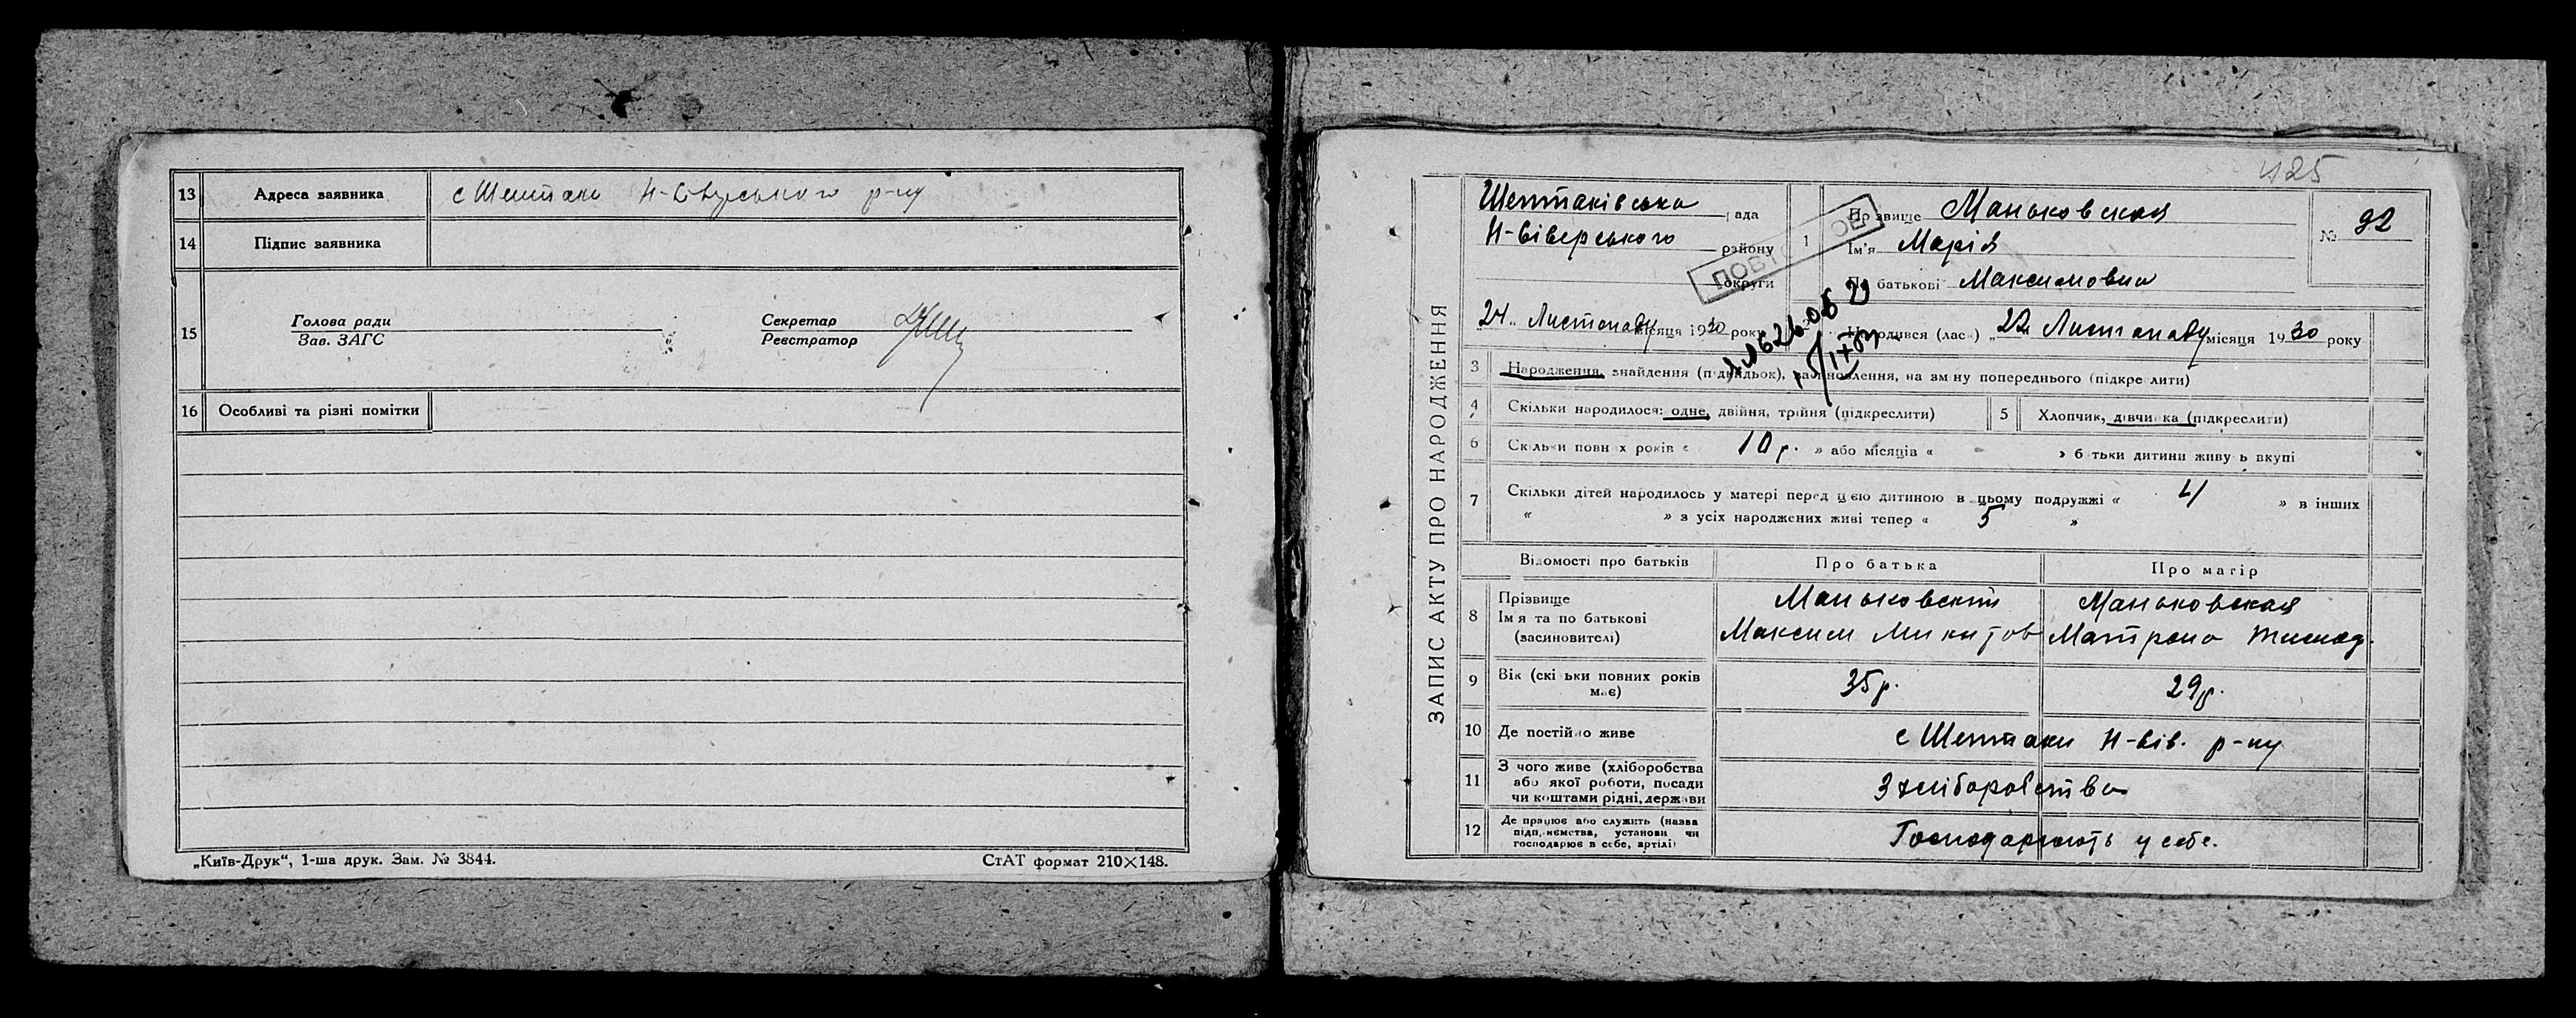 13 Адреса заявника с Шептаки Н-Сіверського р-ну
14 Підпис заявника
15 Голова ради
Зав. ЗАГС
Секретар
Реєстратор
16 Особливі та різні помітки
„Київ-Друк“, 1-ша друк. Зам. № 3844.
СтАТ формат 210×148.
425
ЗАПИС АКТУ ПРО НАРОДЖЕННЯ
Шептаківська рада
Н-Сіверського району
округи
24 „ Листопаду місяця 1930 року
ПОВТ
1 Прізвище Маньковская
Ім'я Марія
По батькові Максимовна
№ 92
Народився (лась) „ 22 „ Листопаду місяця 1930 року
3 Народження, знайдення (підкидьок), засиновлення, на зміну попереднього (підкреслити)
4 Скільки народилося: одне, двійня, трійня (підкреслити)
5 Хлопчик, дівчинка (підкреслити)
6 Скільки повних років « 10 р. » або місяців « - » батьки дитини живуть вкупі
7 Скільки дітей народилось у матері перед цією дитиною в цьому подружжі « 4 » в інших
« » з усіх народжених живі тепер « 5 »
Відомості про батьків Про батька Про матір
8 Прізвище
Ім'я та по батькові
(засиновителі)
Маньковский
Максим Микитов
Маньковская
Матрона
9 Вік (скільки повних років
має)
35 р. 29 р.
10 Де постійно живе с Шептаки Н-Сів. р-ну
11 З чого живе (хліборобства
або якої роботи, посади
чи коштами рідні, держави
З хліборобства
12 Де працює або служить (назва
підприємства, установи чи
господарює в себе, артілі)
Господарюють у себе.